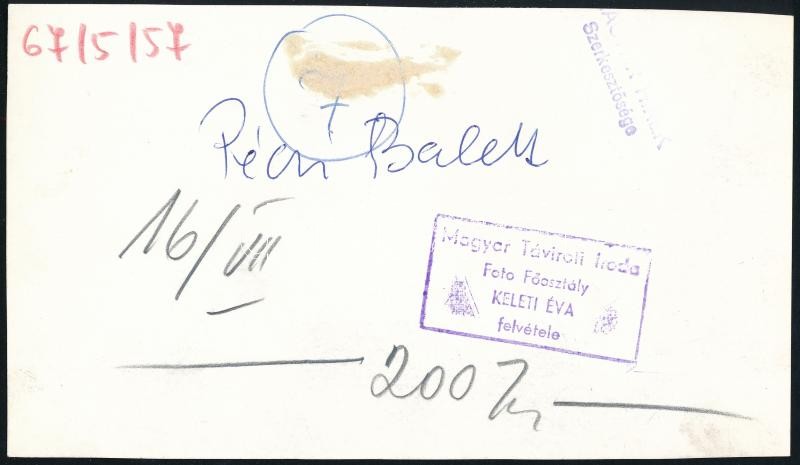 67/5/57
7
Szerkesztősége
Pécsi Balett
16/VII
Magyar Távirati Iroda
Foto Főosztály
KELETI ÉVA
felvétele
200